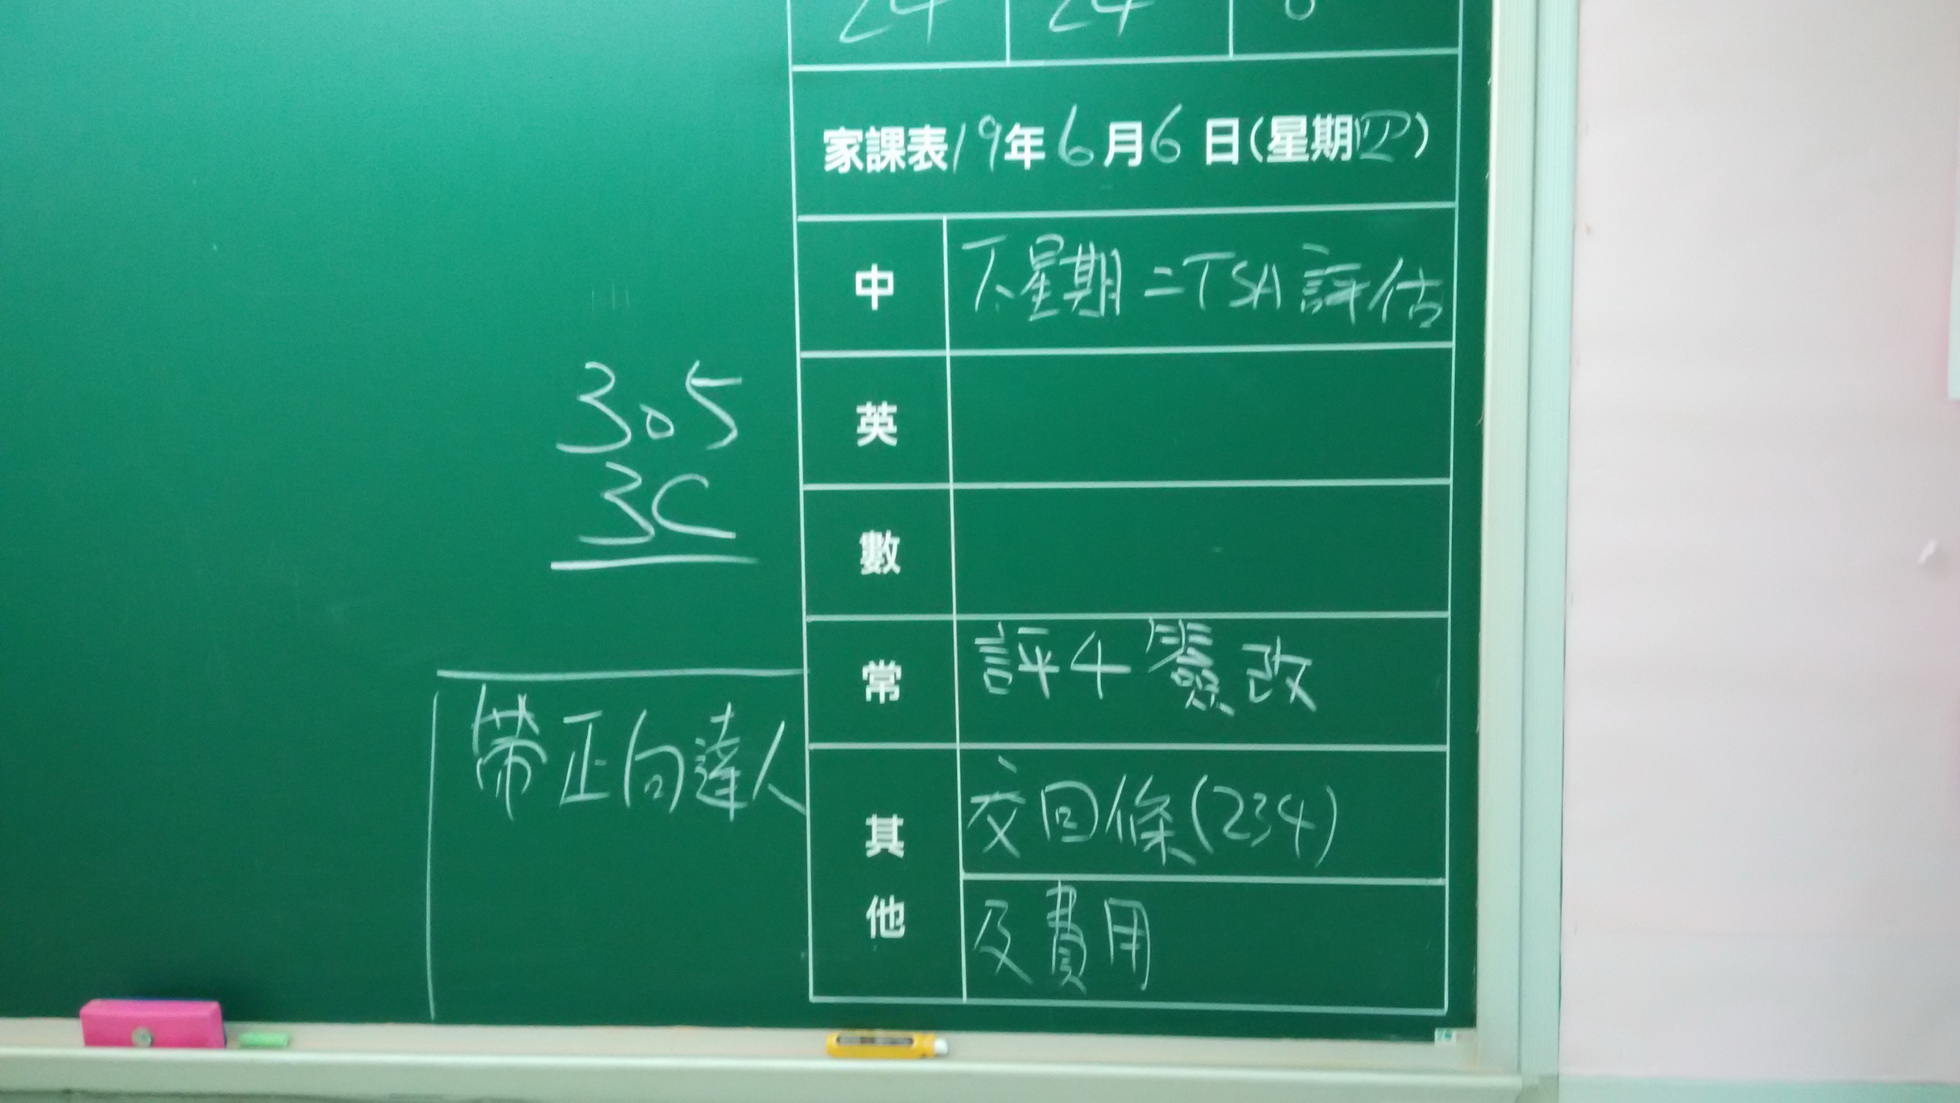 24 24 0
家課表19年6月6日(星期四)
中 下星期二TSA評估
英
數
常 評4 簽改
其他 交回條(234)
及費用
305
3C
帶正向達人